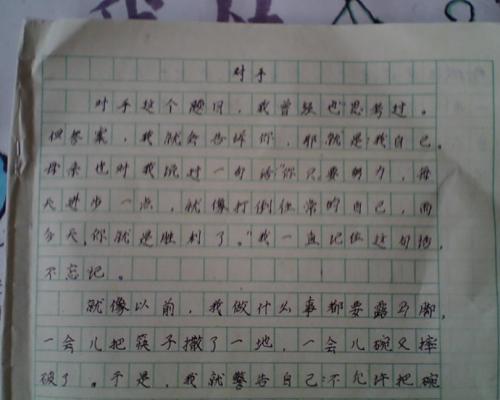 对手
对手这个题目，我曾经也思考过。
但答案，我就会告诉你，那就是:我自己。
母亲也对我说过一句话:"你只要努力，每
天进步一点，就像打倒往常的自己，而
今天，你就是胜利了。"我一直记住这句话，
不忘记。
就像以前，我做什么事都要露马脚，
一会儿把筷子撒了一地，一会儿碗又摔
破了。于是，我就警告自己:不允许把碗